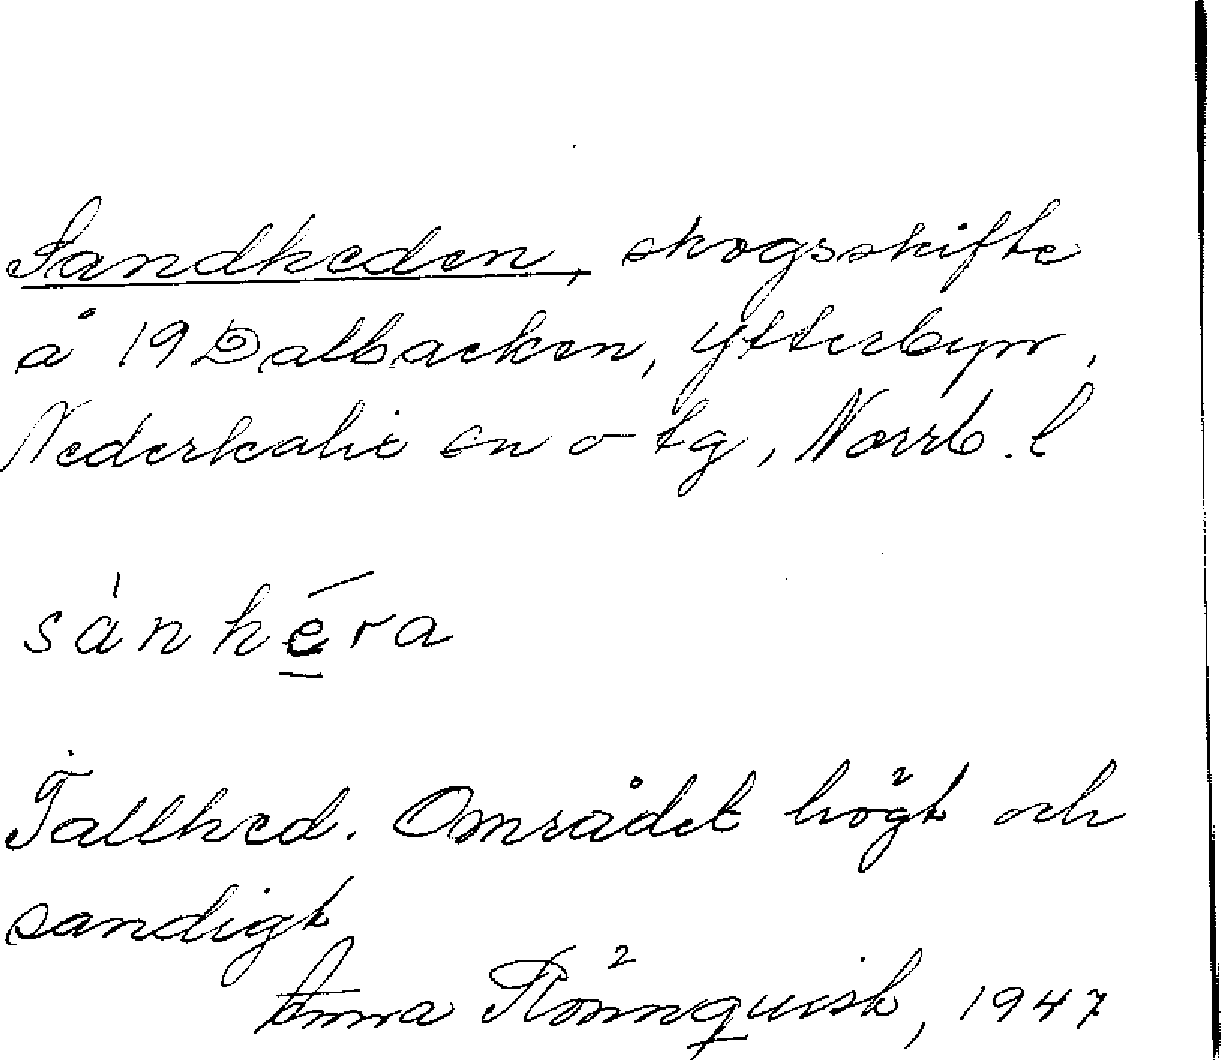 Sandheden, skogsskifte
å 19 Dalbacken, Ytterbyn,
Nederkalix sn o tg, Norrb. l
sánhéra
Tallhed. Området högt och
sandigt
Anna Rönnquist, 1947